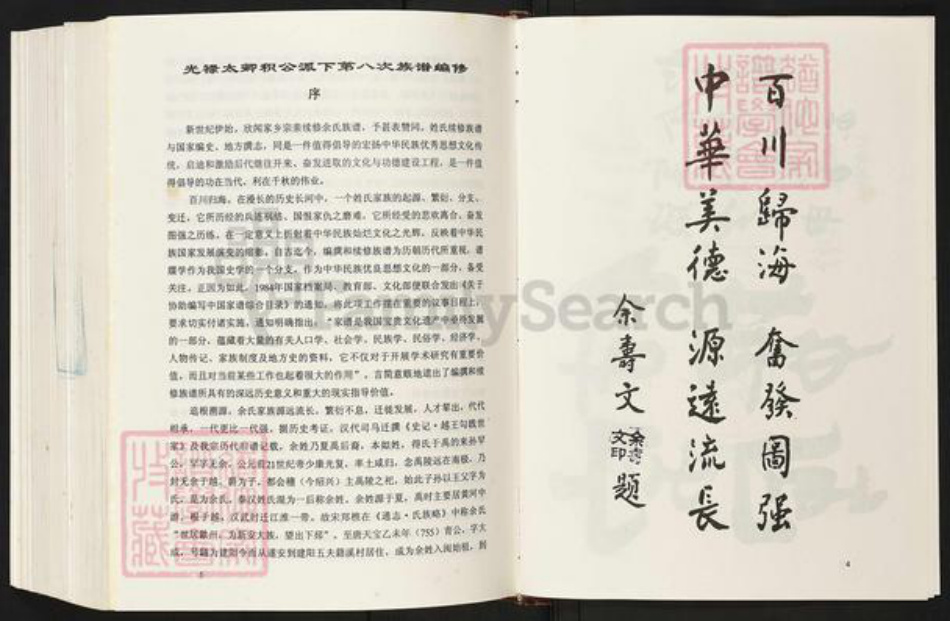 光禄太卿积公派下第八次族谱编修
序
新世纪伊始，欣闻家乡宗亲续修余氏族谱，予甚表赞同。姓氏续修族谱
与国家编史、地方撰志，同是一件值得倡导的宏扬中华民族优秀思想文化传
统，启迪和激励后代继往开来、奋发进取的文化与功德建设工程，是一件值
得倡导的功在当代，利在千秋的伟业。
百川归海。在漫长的历史长河中，一个姓氏家族的起源、繁衍、分支、
变迁，它所历经的兵连祸结、国恨家仇之磨难，它所经受的悲欢离合、奋发
图强之历练，在一定意义上折射着中华民族灿烂文化之光辉，反映着中华民
族国家发展演变的缩影。自古迄今，编撰和续修族谱为历朝历代所重视，谱
牒学作为我国史学的一个分支，作为中华民族优良思想文化的一部分，备受
关注。正因为如此，1984年国家档案局、教育部、文化部便联合发出《关于
协助编写中国家谱综合目录》的通知，将此项工作摆在重要的议事日程上，
要求切实付诸实施。通知明确指出：“家谱是我国宝贵文化遗产中亟待发展
的一部分，蕴藏着大量的有关人口学、社会学、民族学、民俗学、经济学、
人物传记、家族制度及地方史的资料，它不仅对于开展学术研究有重要价
值，而且对当前某些工作也起着很大的作用”。言简意赅地道出了编撰和续
修族谱所具有的深远历史意义和重大的现实指导价值。
追根溯源，余氏家族源远流长，繁衍不息，迁徙发展，人才辈出，代代
相承，一代更比一代强。据历史考证，汉代司马迁撰《史记·越王勾践世
家》及我宗历代府谱记载，余姓乃夏禹后裔，本姒姓，得氏于禹的来孙罕
公，罕字无余，公元前21世纪帝少康光复，率土咸归，念禹陵远在南极，乃
封无余于越，爵为子，都会稽（今绍兴）主禹陵之祀，始此子孙以王父字为
氏，是为余氏。秦汉姓氏混为一后称余姓。余姓源于夏，禹时主要居黄河中
游，根子越，汉武时迁江淮一带。故宋郑樵在《通志·氏族略》中称余氏
“世居歙州，为新安大族，望出下邳”。至唐天宝乙未年（755）青公，字大
成，号 为建阳令而从遂安到建阳五夫籍溪村居住，成为余姓入闽始祖，到
百川歸海 奮發圖强
中華美德 源遠流長
余壽文題
余壽文印
4